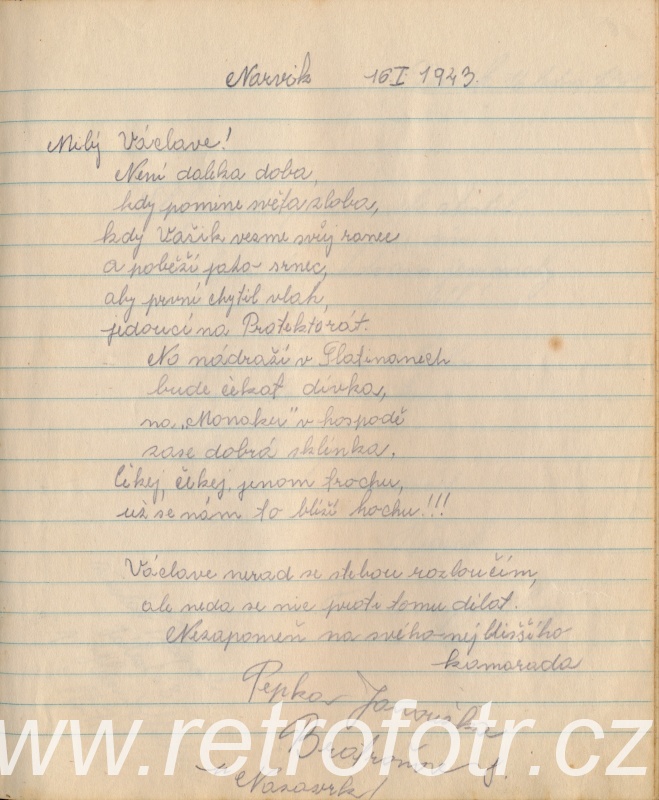 Narvik 16 I 1943.
Milý Václave!
Není daleka doba,
kdy pomine světa zloba,
kdy Vašík vezme svůj ranec
a poběží jako srnec,
aby první chytil vlak,
jedoucí na Protektorát.
Na nádraží v Slatinanech
bude čekat dívka,
na „Monaku" v hospodě
zase dobrá sklínka.
Čekej, čekej jenom trochu,
už se nám to blíží hochu!!!
Václave nerad se stebou rozloučím,
ale neda se nic proti tomu dělat.
Nezapomeň na svého nejbližšího
kamarada
Pepka
www.retrofotr.cz